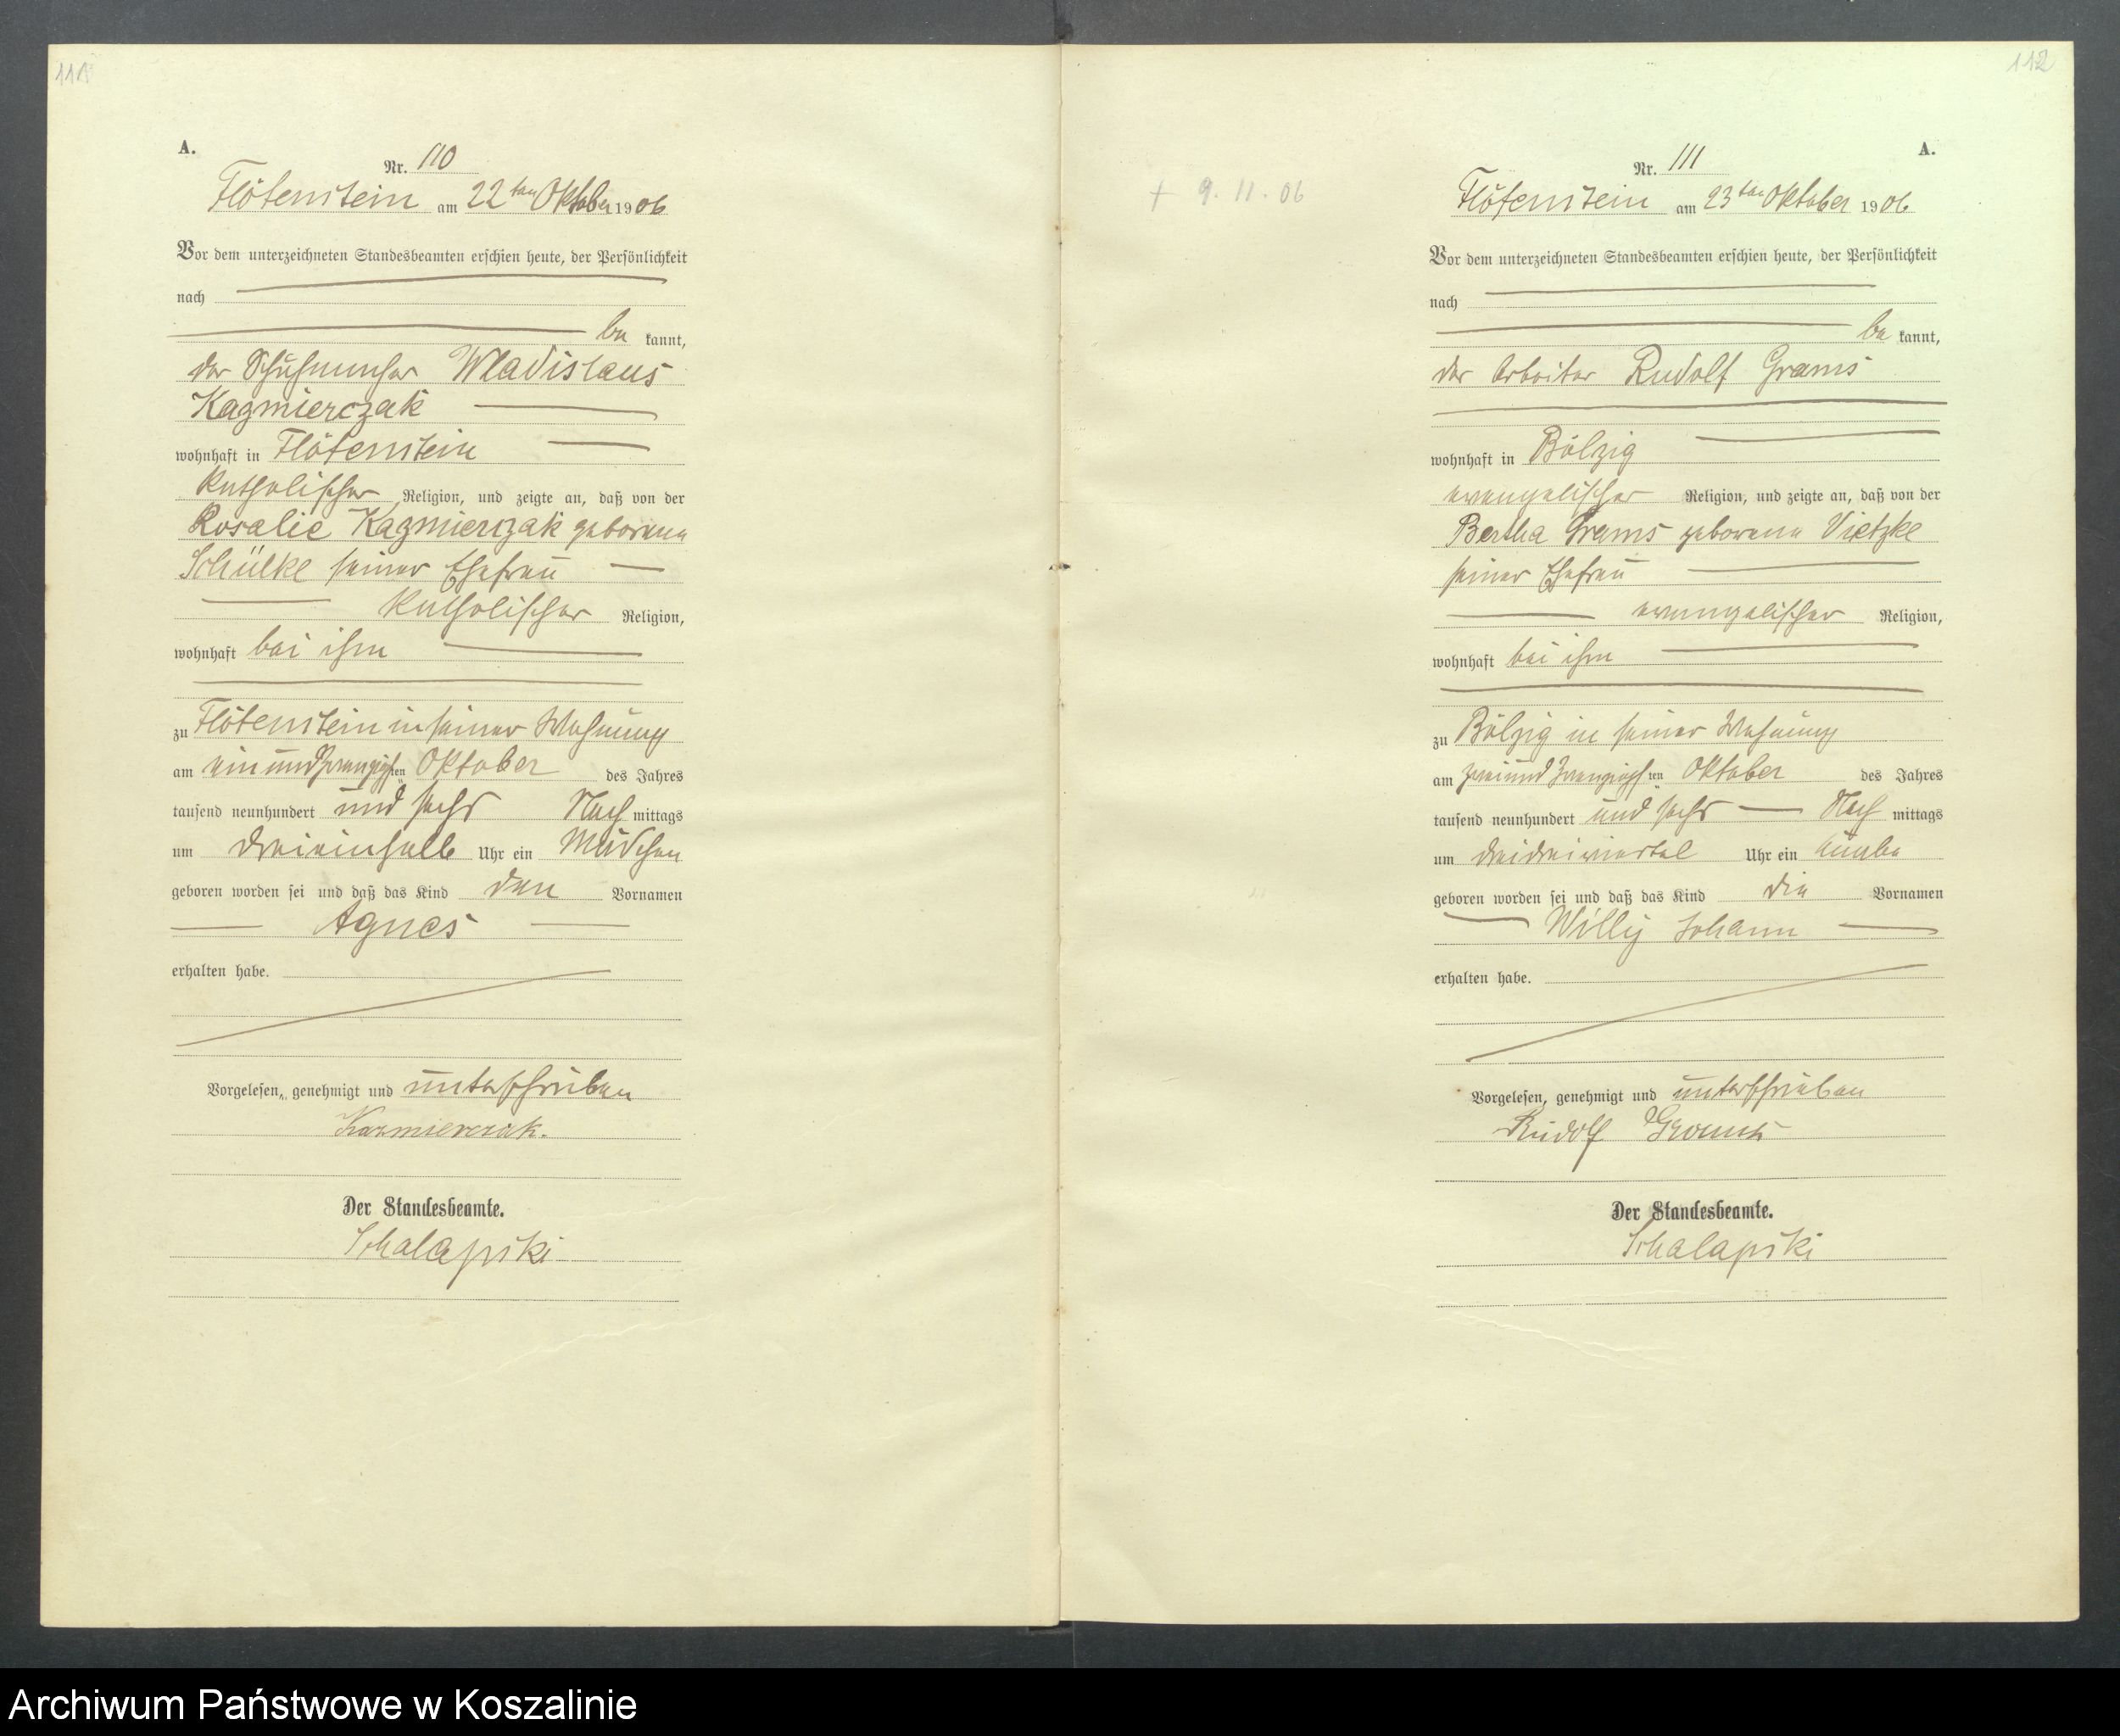 111
A.
Nr. 110
Flötenstein am 22ten Oktober 1906
Vor dem unterzeichneten Standesbeamten erschien heute, der Persönlichkeit
nach
be kannt,
der Schuhmacher Wladislaus
Kazmierczak
wohnhaft in Flötenstein
katholischer Religion, und zeigte an, daß von der
Rosalie Kazmierczak geborene
Schülke seiner Ehefrau
katholischer Religion,
wohnhaft bei ihm
zu Flötenstein in seiner Wohnung
am einundzwanzigsten Oktober des Jahres
tausend neunhundert und sechs Nach mittags
um dreieinhalb Uhr ein Mädchen
geboren worden sei und daß das Kind den Vornamen
Agnes
erhalten habe.
Vorgelesen, genehmigt und unterschrieben
Kazmierczak.
Der Standesbeamte.
Schalapski
112
A.
Nr. 111
+ 9. 11. 06
Flötenstein am 23ten Oktober 1906
Vor dem unterzeichneten Standesbeamten erschien heute, der Persönlichkeit
nach
be kannt,
der Arbeiter Rudolf Grams
wohnhaft in Bölzig
evangelischer Religion, und zeigte an, daß von der
Bertha Grams geborene Vietzke
seiner Ehefrau
evangelischer Religion,
wohnhaft bei ihm
zu Bölzig in seiner Wohnung
am zweiundzwanzigsten Oktober des Jahres
tausend neunhundert und sechs Nach mittags
um dreidreiviertel Uhr ein Knabe
geboren worden sei und daß das Kind die Vornamen
Willy Johann
erhalten habe.
Vorgelesen, genehmigt und unterschrieben
Rudolf Grams
Der Standesbeamte.
Schalapski
Archiwum Państwowe w Koszalinie